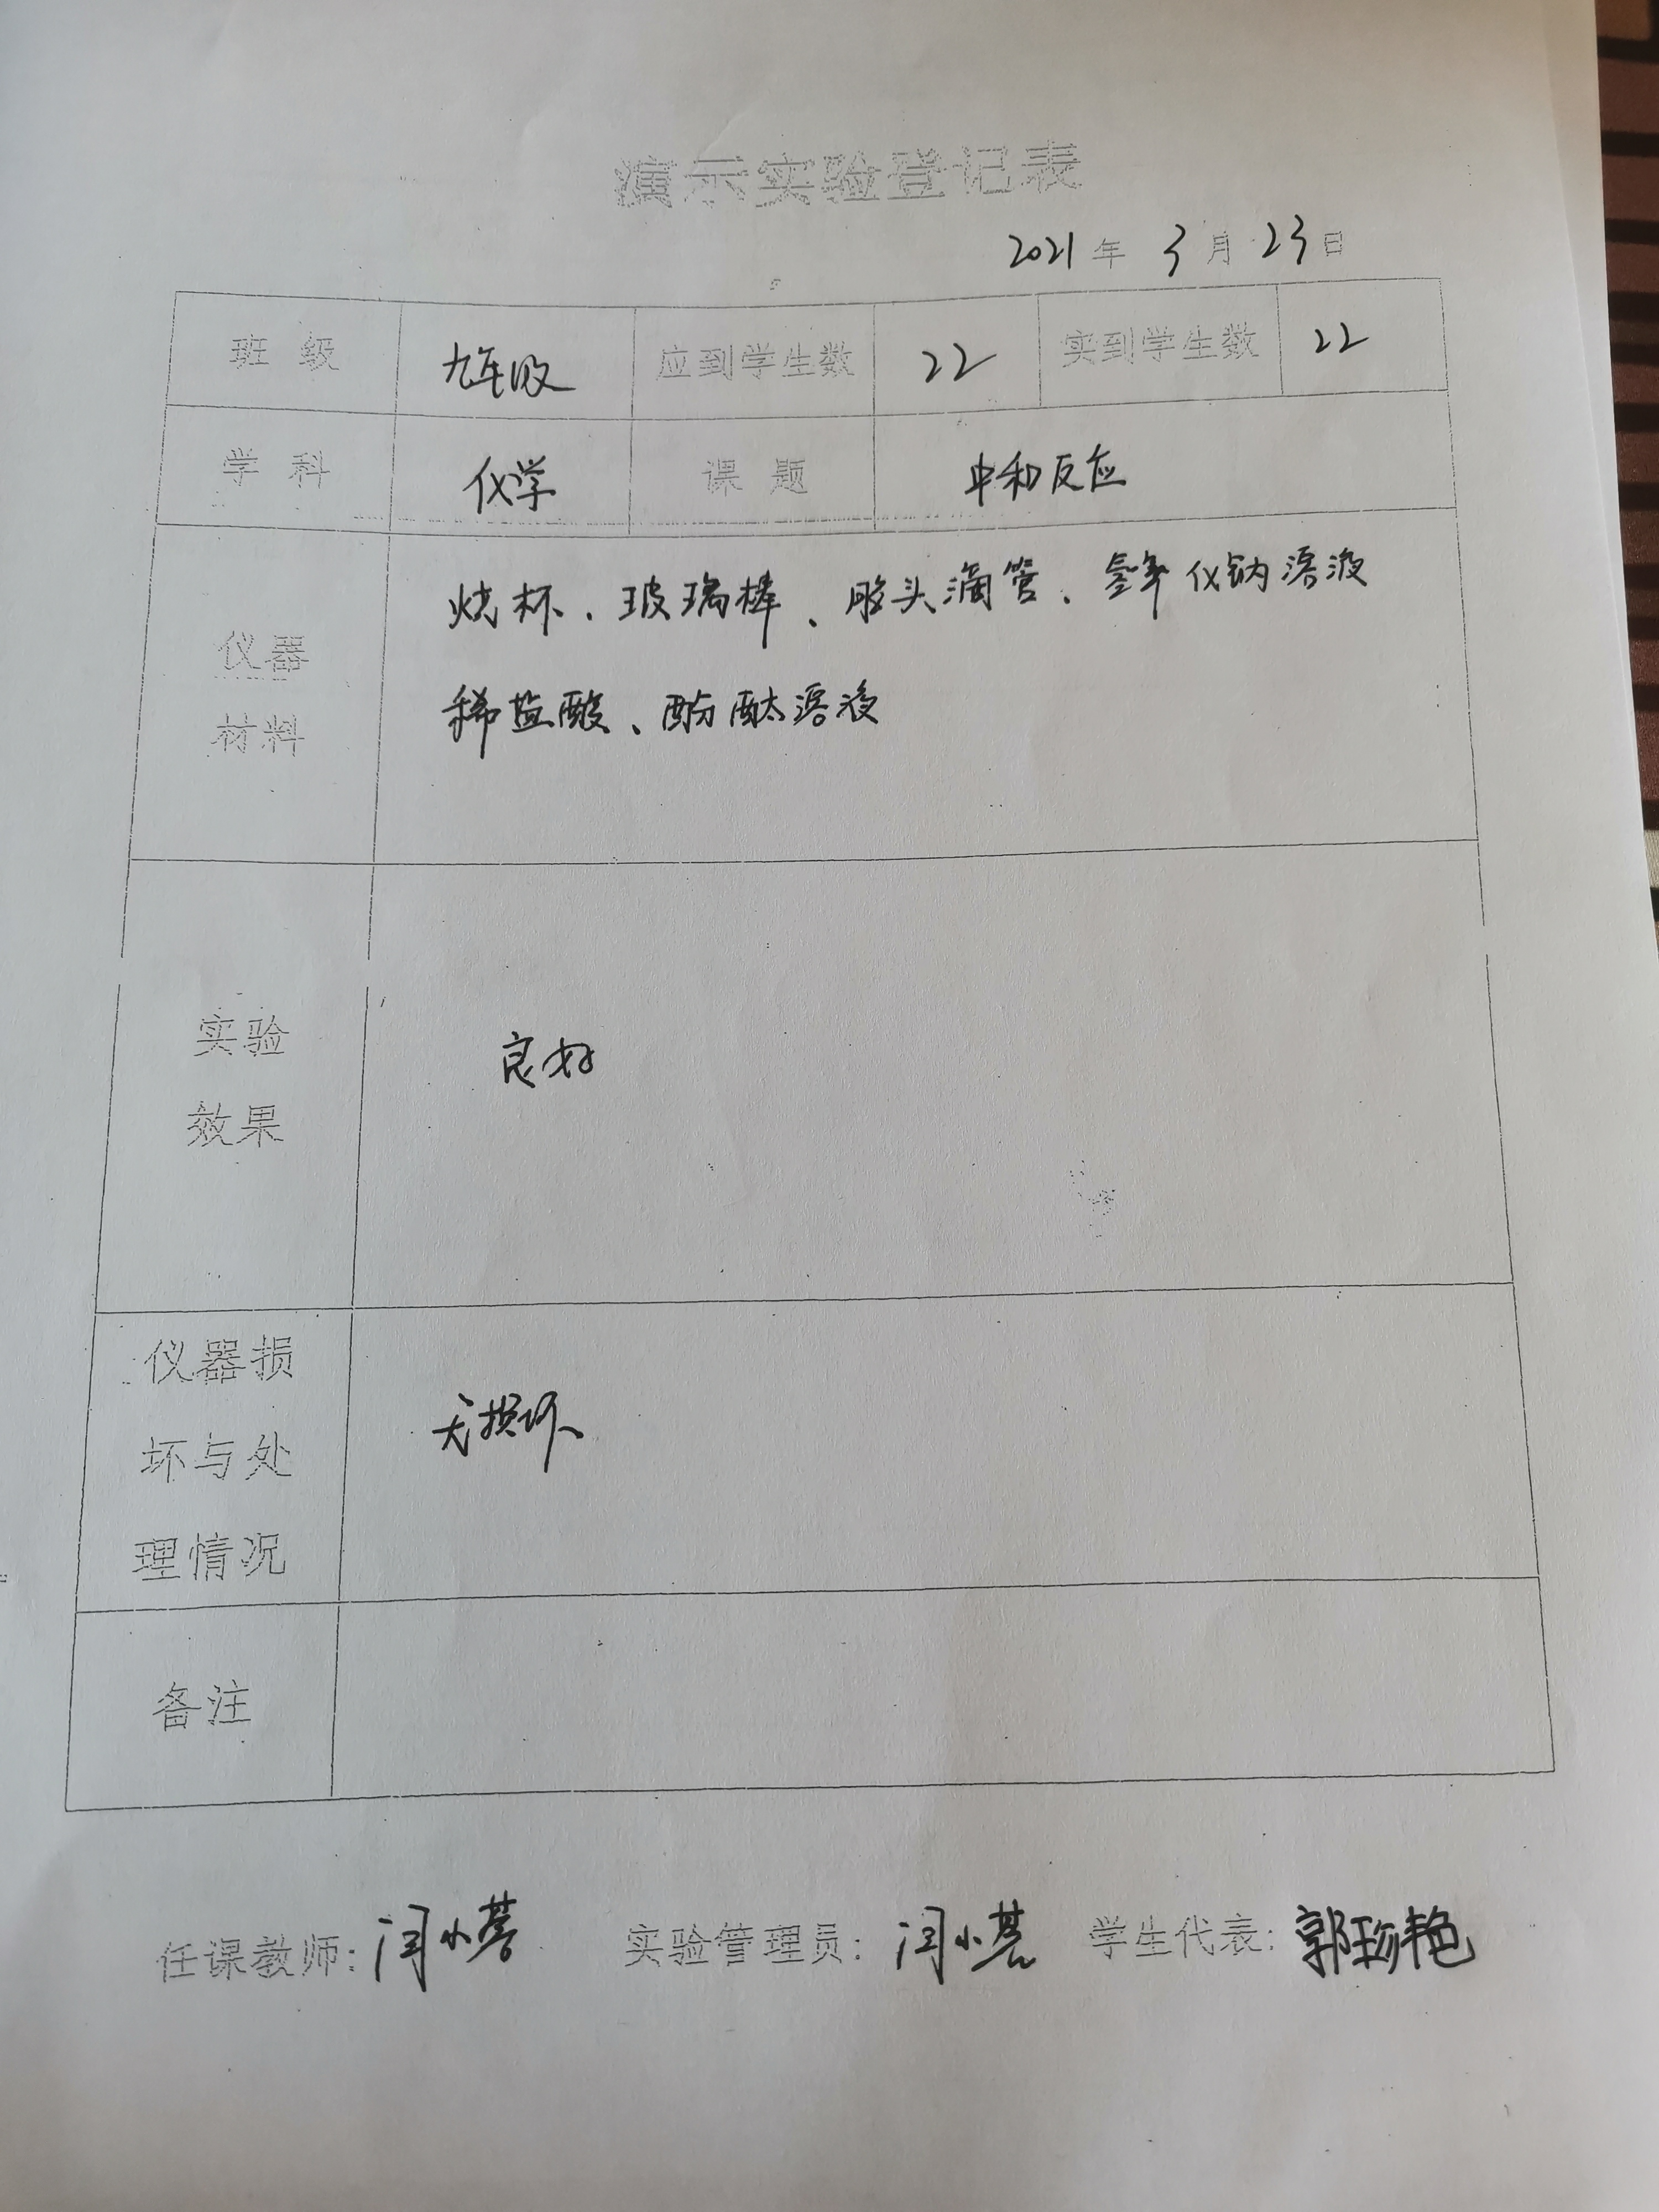 演示实验登记表
2021年 3月 23日
班 级 九年级 应到学生数 22 实到学生数 22
学 科 化学 课 题 中和反应
仪器
材料
烧杯、玻璃棒、胶头滴管、氢氧化钠溶液
稀盐酸、酚酞溶液
实验
效果
良好
仪器损
坏与处
理情况
无损坏
备注
任课教师: 闫小 实验管理员: 闫小 学生代表: 郭珍艳